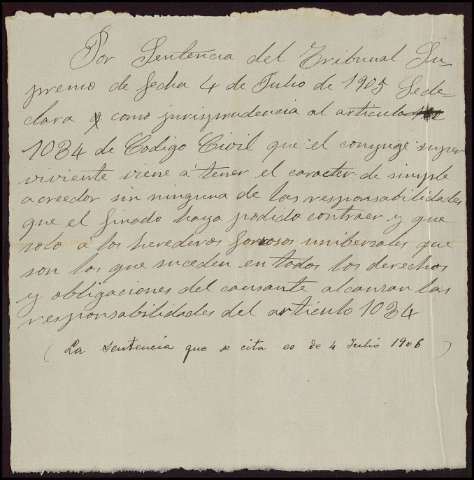 Por Sentencia del Tribunal Su
premo de fecha 4 de Julio de 1905 Se de
clara como jurisprudencia al articulo
1034 de Codigo Civil que el conyuge super
viviente viene á tener el caracter de simple
acreedor sin ninguna de las responsabilidades
que el finado haya podido contraer y que
solo á los herederos forsosos unibersales que
son los que suceden en todos los derechos
y obligaciones del causante alcanzan las
responsabilidades del articulo 1034
(La sentencia que se cita es de 4 Julio 1906)